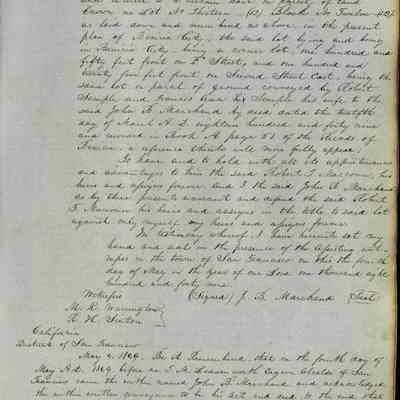 known as Lot No Thirteen (13) Block No Twelve (12)
as laid down and numbered as above in the present
plan of Benicia City, the said lot lying and being
in Benicia City being a corner lot, one hundred and
fifty feet front on D Street, and one hundred and
twenty five feet front on Second Street East, being the
same lot or parcel of ground conveyed by Robert
Semple and Frances Ann his Semple his wife to the
said John B. Marchand by deed dated the twelfth
day of March A.D. eighteen hundred and forty nine
and record in Book A page 51 of the Records of
Benicia, a reference thereto will more fully appear:
To have and to hold with all its appurtenances
and advantages to him the said Robert F. his
heirs and assigns forever. And I the said John B. Marchand
do by these presents warrant and defend the said Robert
F. his heirs and assigns in the title to said lot
against only myself my heirs and assigns forever.
In testimony whereof I have hereunto set my
hand and seal in the presence of the
in the town of San Francisco on this the fourth
day of May in the year of our Lord one thousand eight
hundred and forty nine.
Witnesses (Signed) J. B. Marchand (Seal)
M. R. Warrington
R. H. Sinton
California
District of San Francisco
May 4, 1849. Be it Remembered that on the fourth day of
May A.D. 1849 before me T. M. Leavenworth Alcalde of San
Francisco came the within named John B. Marchand and acknowledged
the within conveyance to be his act and deed to the end that